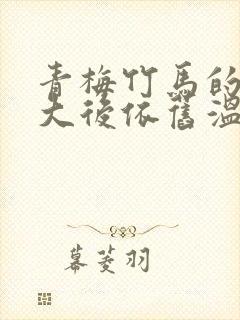 青梅竹馬的
大後依舊溫
暮菱羽